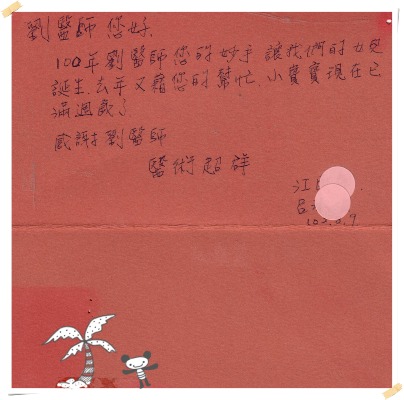 劉醫師 您好.
100年劉醫師您的妙手 讓我們的女兒
誕生.去年又藉您的幫忙.小寶寶現在已
滿週歲了
感謝劉醫師
醫術超群
江
呂
103.8.9